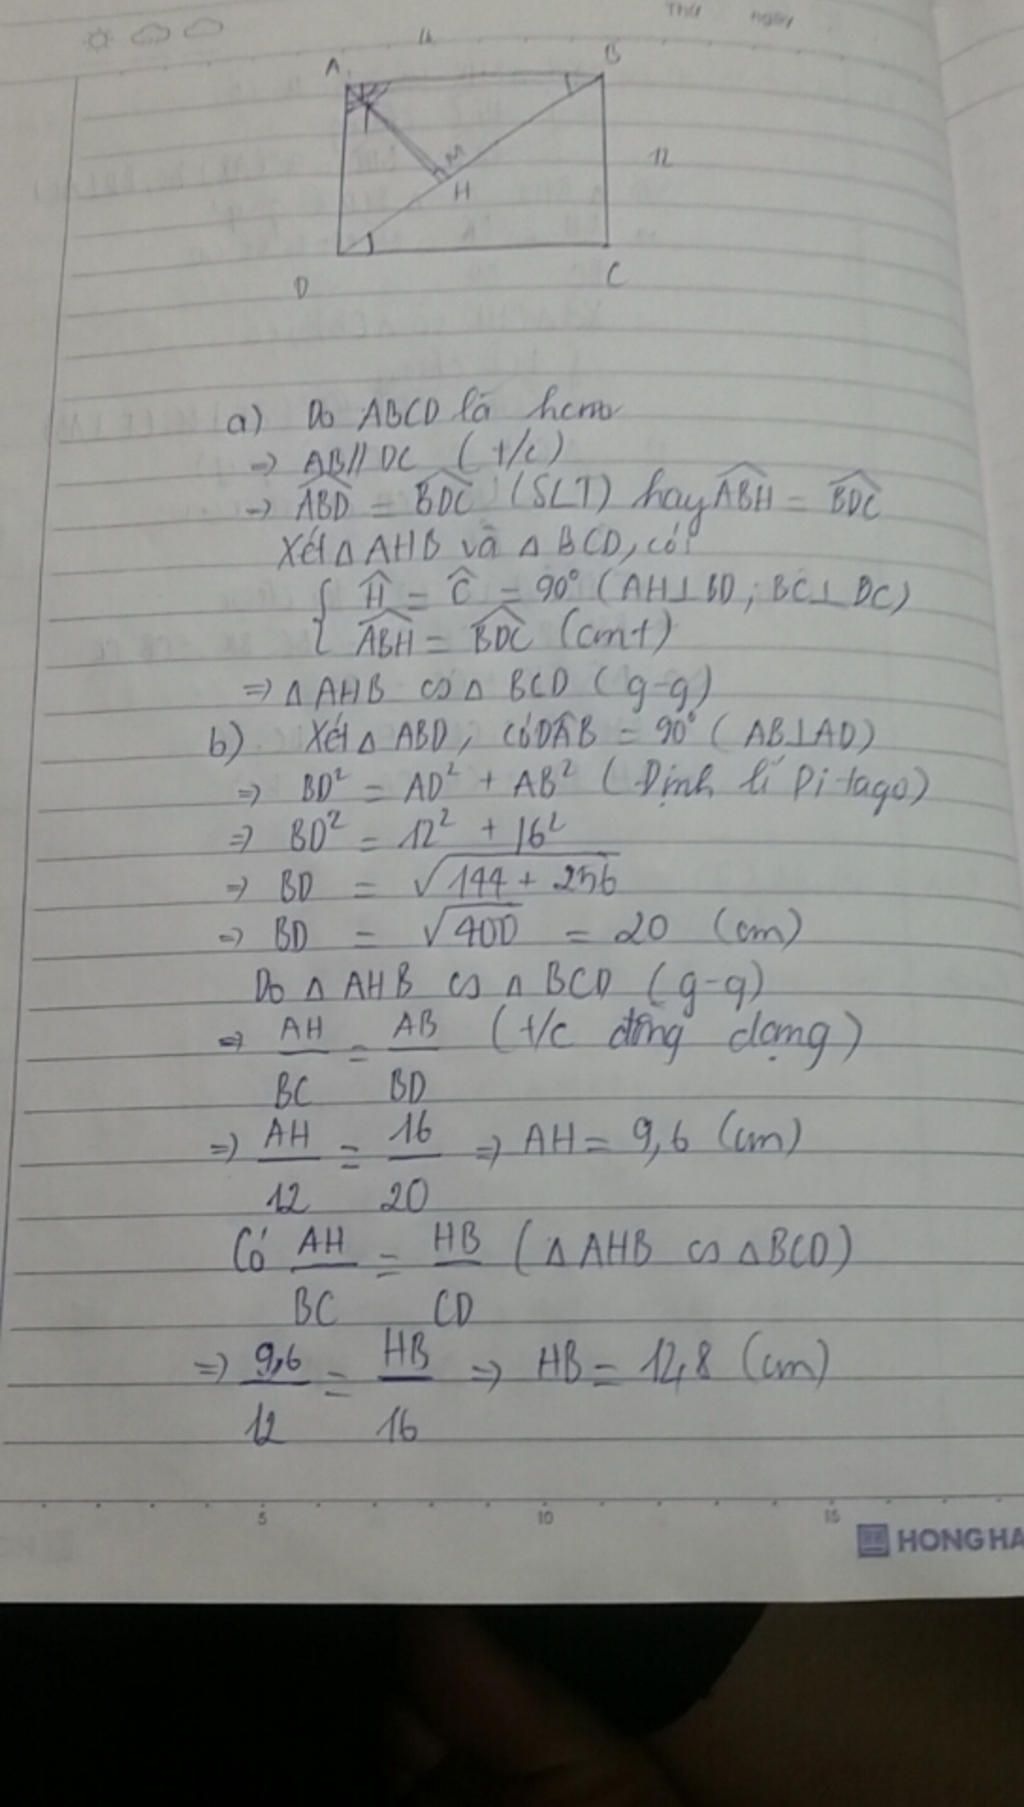 Thứ ngày
A B
12
M
H
D C
a) Do ABCD là hcn
=> AB // DC (t/c)
=> ABD = BDC (SLT) hay ABH = BDC
Xét Δ AHB và Δ BCD, có:
{ Ĥ = Ĉ = 90° (AH⊥BD; BC⊥DC)
ABH = BDC (cmt)
=> Δ AHB ᔕ Δ BCD (g-g)
b) Xét Δ ABD, có DAB = 90° (AB⊥AD)
=> BD² = AD² + AB² (Định lí Pi-tago)
=> BD² = 12² + 16²
=> BD = √144 + 256
=> BD = √400 = 20 (cm)
Do Δ AHB ᔕ Δ BCD (g-g)
=> AH/BC = AB/BD (t/c đồng dạng)
=> AH/12 = 16/20 => AH = 9,6 (cm)
Có AH/BC = HB/CD (Δ AHB ᔕ Δ BCD)
=> 9,6/12 = HB/16 => HB = 12,8 (cm)
5 10 15
HONG HA